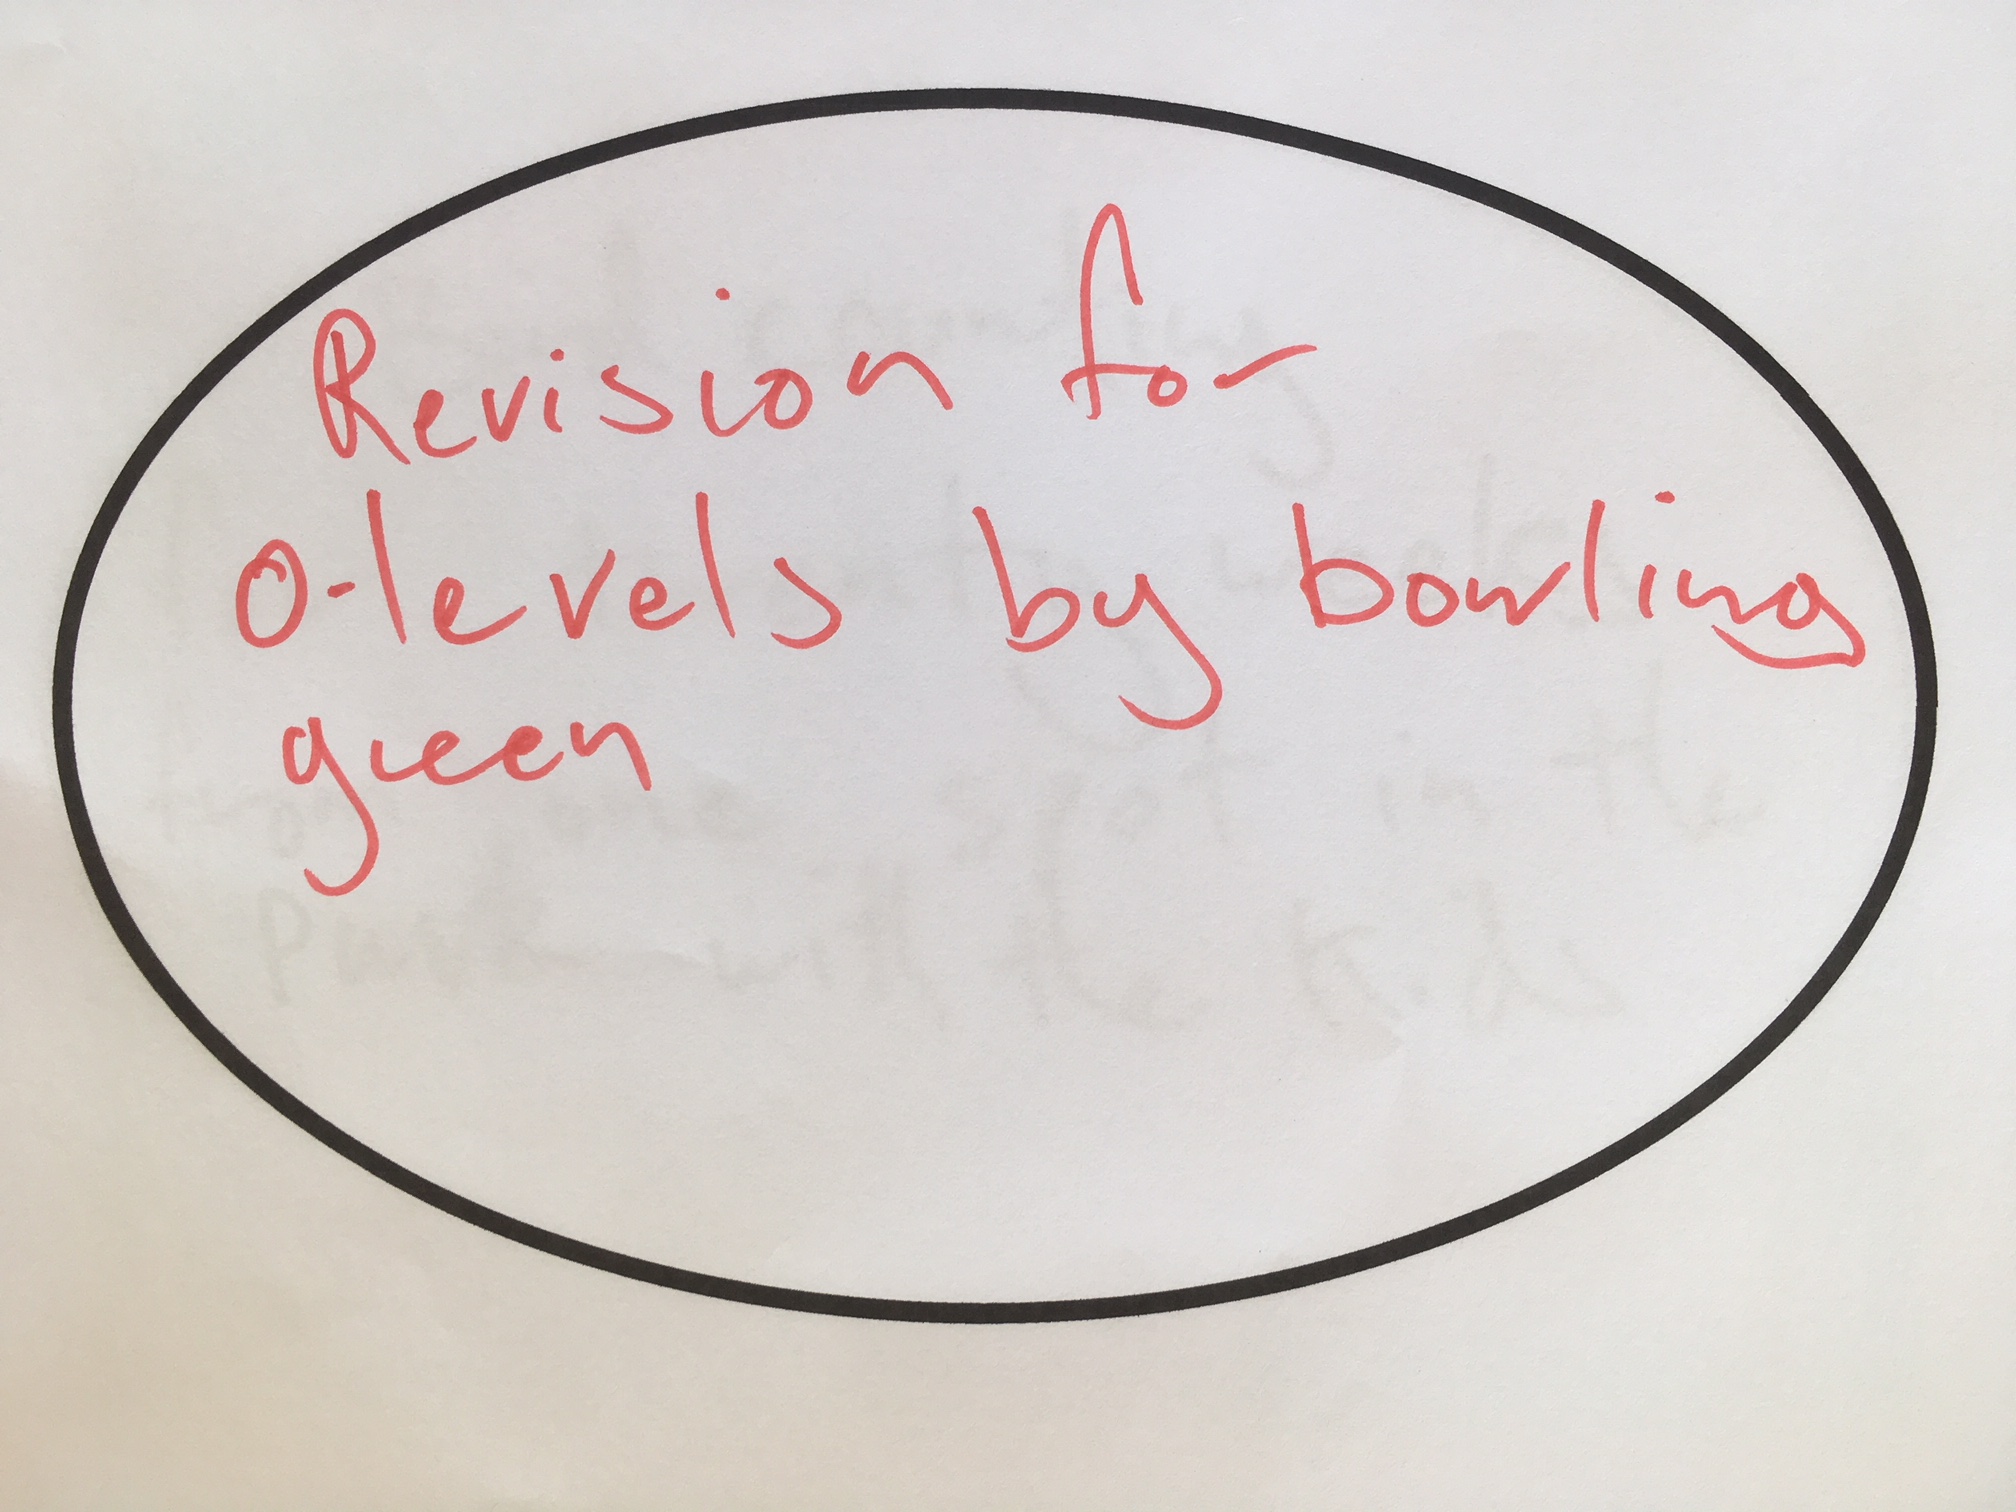 Revision for
O-levels by bowling
green